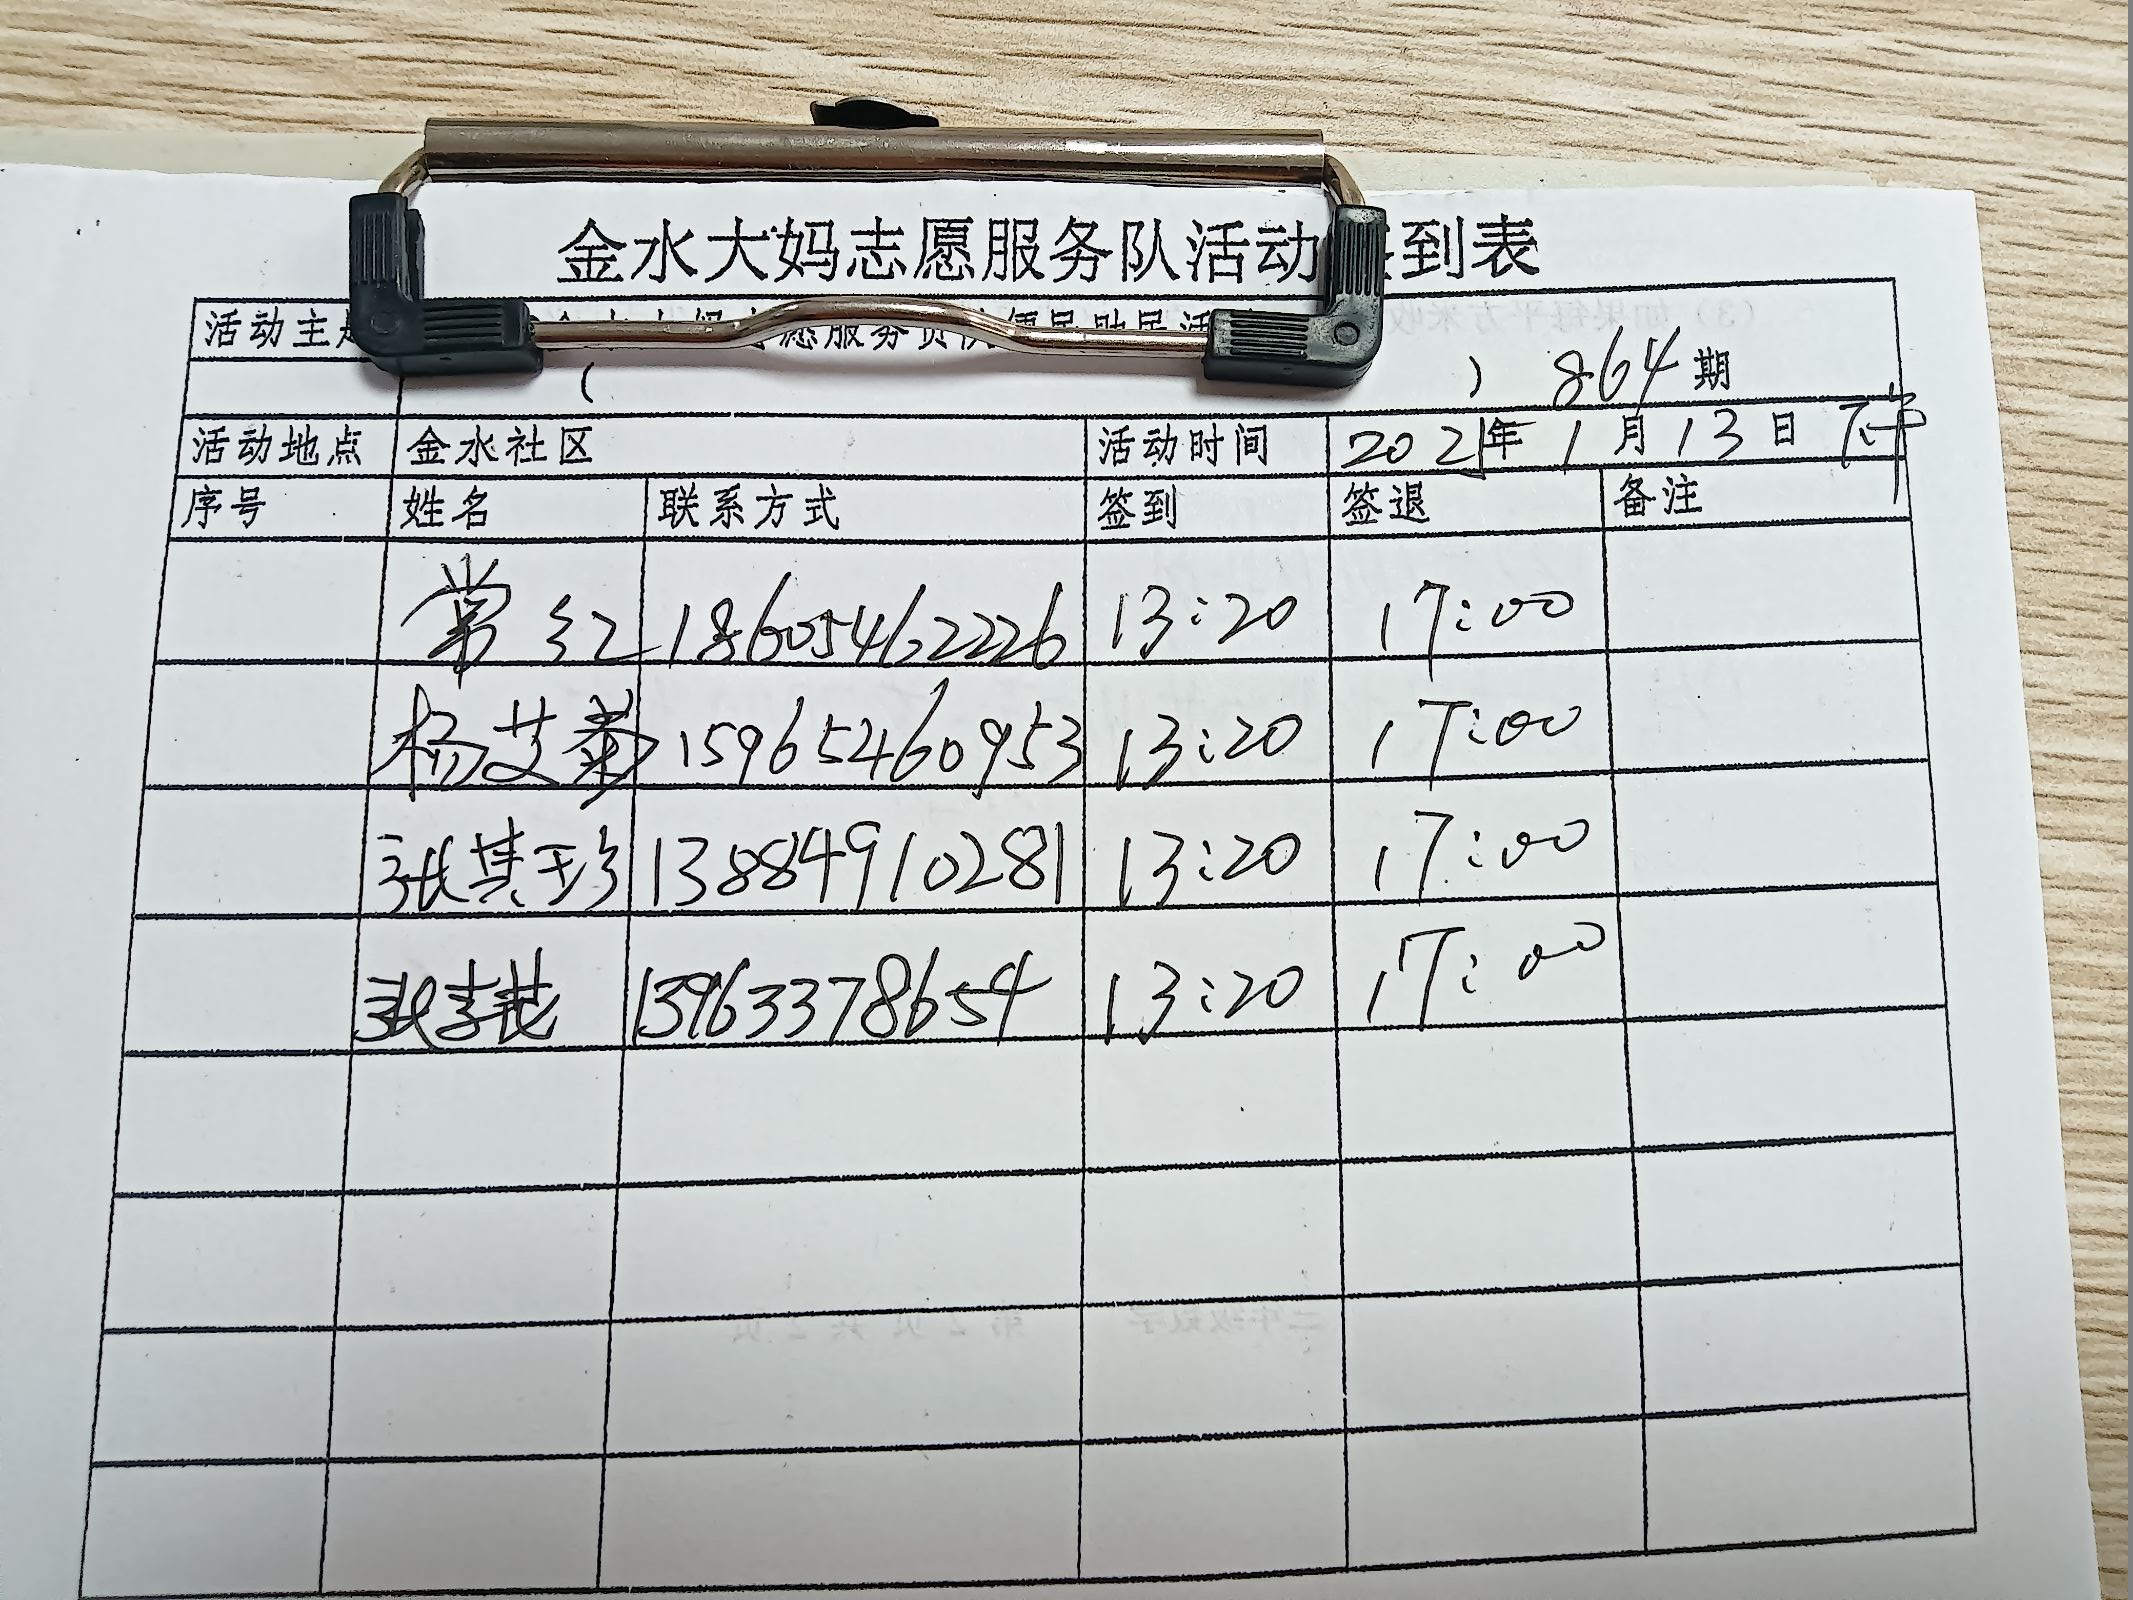 金水大妈志愿服务队活动签到表
活动主题
愿服务
( ) 864期
活动地点 金水社区 活动时间 2021年1月13日 下午
序号 姓名 联系方式 签到 签退 备注
常红 18605462226 13:20 17:00
杨艾菊 15965460953 13:20 17:00
张其珍 13884910281 13:20 17:00
13963378654 13:20 17:00